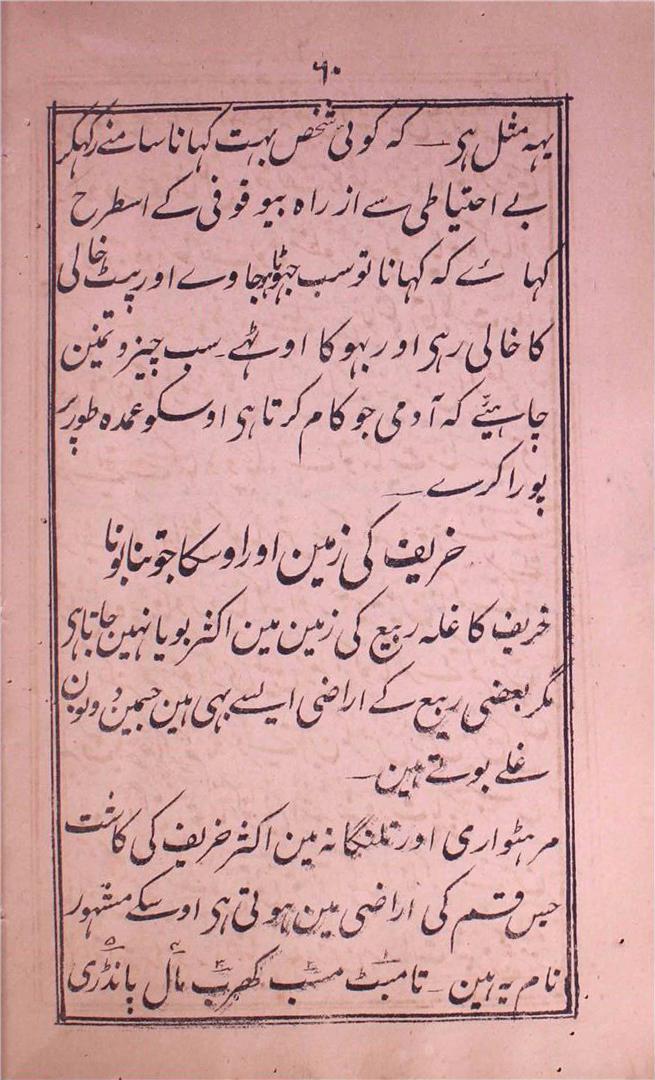 ۶۰
یہہ مثل ہی۔ کہ کوئی شخص بہت کہانا سامنے رکہکر
بے احتیاطی سے از راہ بیوقوفی کے اسطرح
کہائے کہ کہانا تو سب جہوٹا ہو جاوے اور پیٹ خالی
کا خالی رہی اور بہوکا اوٹہے۔ سب چیزوتمین
چاہئیے کہ آدمی جو کام کرتا ہی اوسکو عمدہ طور پر
پورا کرے۔
خریف کی زمین اور اوسکا جوتنا بونا
خریف کا غلہ ربیع کی زمین مین اکثر بویا نہین جاتا ہی
مگر بعضی ربیع کے اراضی ایسے بہی ہین جسمین دونون
غلے بوتے ہین۔
مرہٹواری اور تلنگانہ مین اکثر خریف کی کاشت
جس قسم کی اراضی مین ہوتی ہی اوسکے مشہور
نام یہ ہین۔ تامبٹ مسب کھرب مال پانڈری